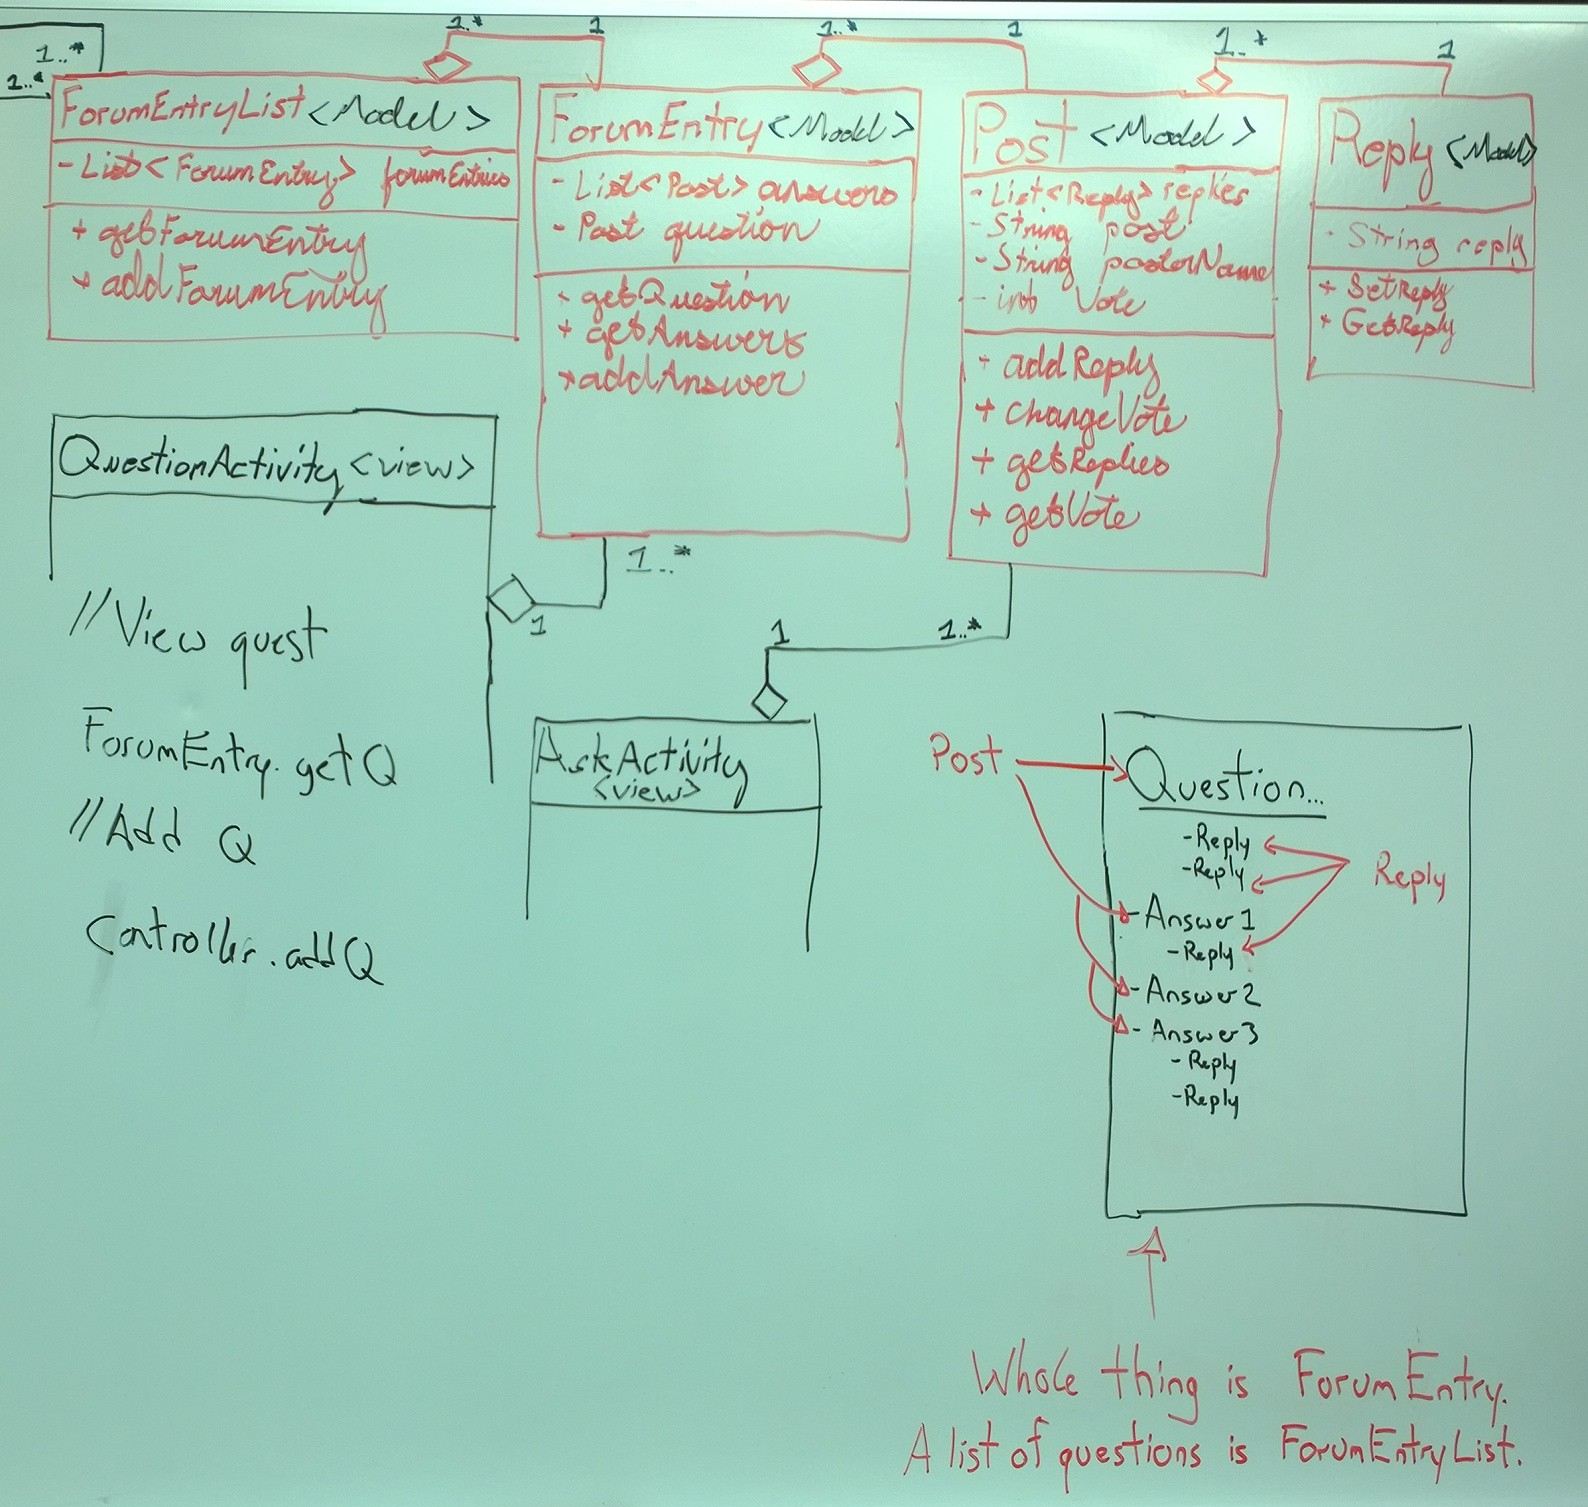 1..*
1..*
1..*
1
ForumEntryList <Model>
- List<ForumEntry> forumEntries
+ getForumEntry
+ addForumEntry
1..*
1
ForumEntry <Model>
- List<Post> answers
- Post question
+ getQuestion
+ getAnswers
+ addAnswer
1..*
1
Post <Model>
- List<Reply> replies
- String post
- String posterName
- int Vote
+ addReply
+ changeVote
+ getReplies
+ getVote
Reply <Model>
- String reply
+ SetReply
+ GetReply
QuestionActivity <view>
1..*
1
//View quest
ForumEntry.getQ
//Add Q
Controller.addQ
1
1..*
AskActivity
<view>
Post
Question...
-Reply
-Reply
Reply
- Answer 1
-Reply
- Answer 2
- Answer 3
-Reply
-Reply
Whole thing is ForumEntry.
A list of questions is ForumEntryList.